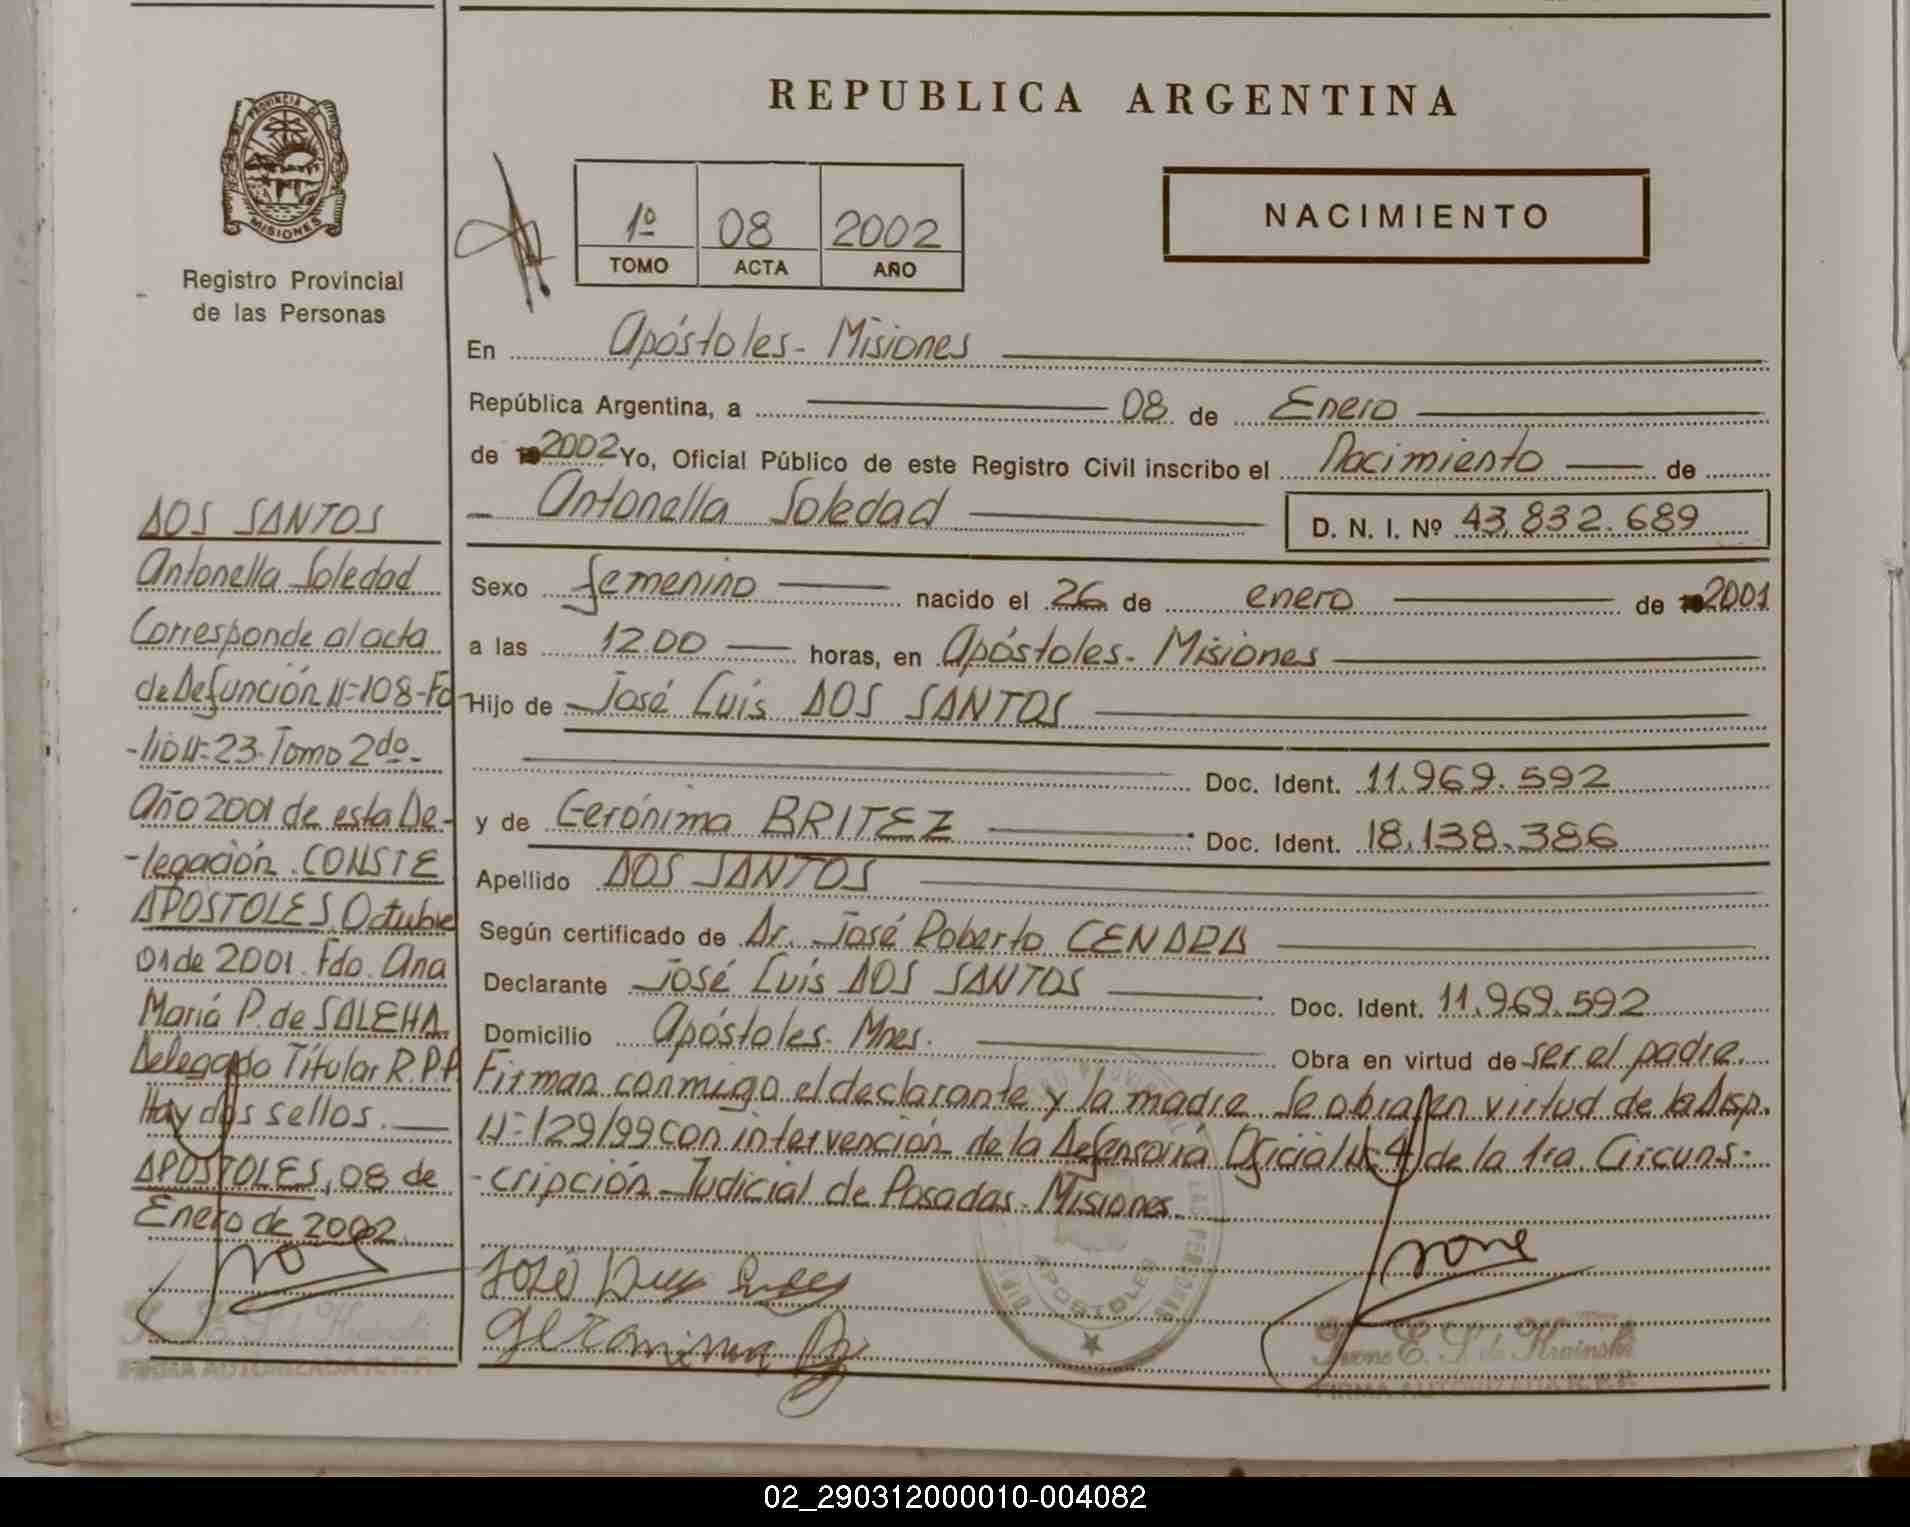 PROVINCIA DE
MISIONES
Registro Provincial
de las Personas
DOS SANTOS
Antonella Soledad
Corresponde al acta
de Defunción Nº 108-Fo
-lio Nº 23-Tomo 2do-
Año 2001 de esta De-
-legación. CONSTE
APOSTOLES, Octubre
01 de 2001. Fdo. Ana
María P. de SALEHA
Delegado Títular R.P.P
Hay dos sellos.
APOSTOLES, 08 de
Enero de 2002.
FIRMA AUTORIZADA R.P.P.
REPUBLICA ARGENTINA
1º 08 2002
TOMO ACTA AÑO
NACIMIENTO
En Apóstoles- Misiones
República Argentina, a 08 de Enero
de 2002 Yo, Oficial Público de este Registro Civil inscribo el Nacimiento de
Antonella Soledad D. N. I. Nº 43.832.689
Sexo femenino nacido el 26 de enero de 2001
a las 12.00 horas, en Apóstoles- Misiones
Hijo de José Luis DOS SANTOS
Doc. Ident. 11.969.592
y de Gerónima BRITEZ Doc. Ident. 18.138.386
Apellido DOS SANTOS
Según certificado de Dr. José Roberto CENDRA
Declarante José Luis DOS SANTOS Doc. Ident. 11.969.592
Domicilio Apóstoles- Mnes. Obra en virtud de ser el padre.
Firman conmigo el declarante y la madre. Se obra en virtud de la Disp.
Nº 129/99 con intervención de la Defensoría Oficial Nº 4 de la 1ra Circuns-
-cripción Judicial de Posadas- Misiones.
José Luis
Geronima
APOSTOLES
LAS PERSONAS
Ivone E. S. de Krainski
FIRMA AUTORIZADA R.P.P.
02_290312000010-004082